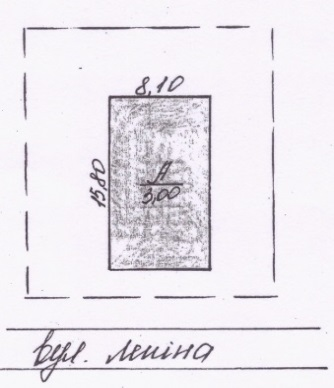 8,10
15,80
А
3,00
вул. Леніна